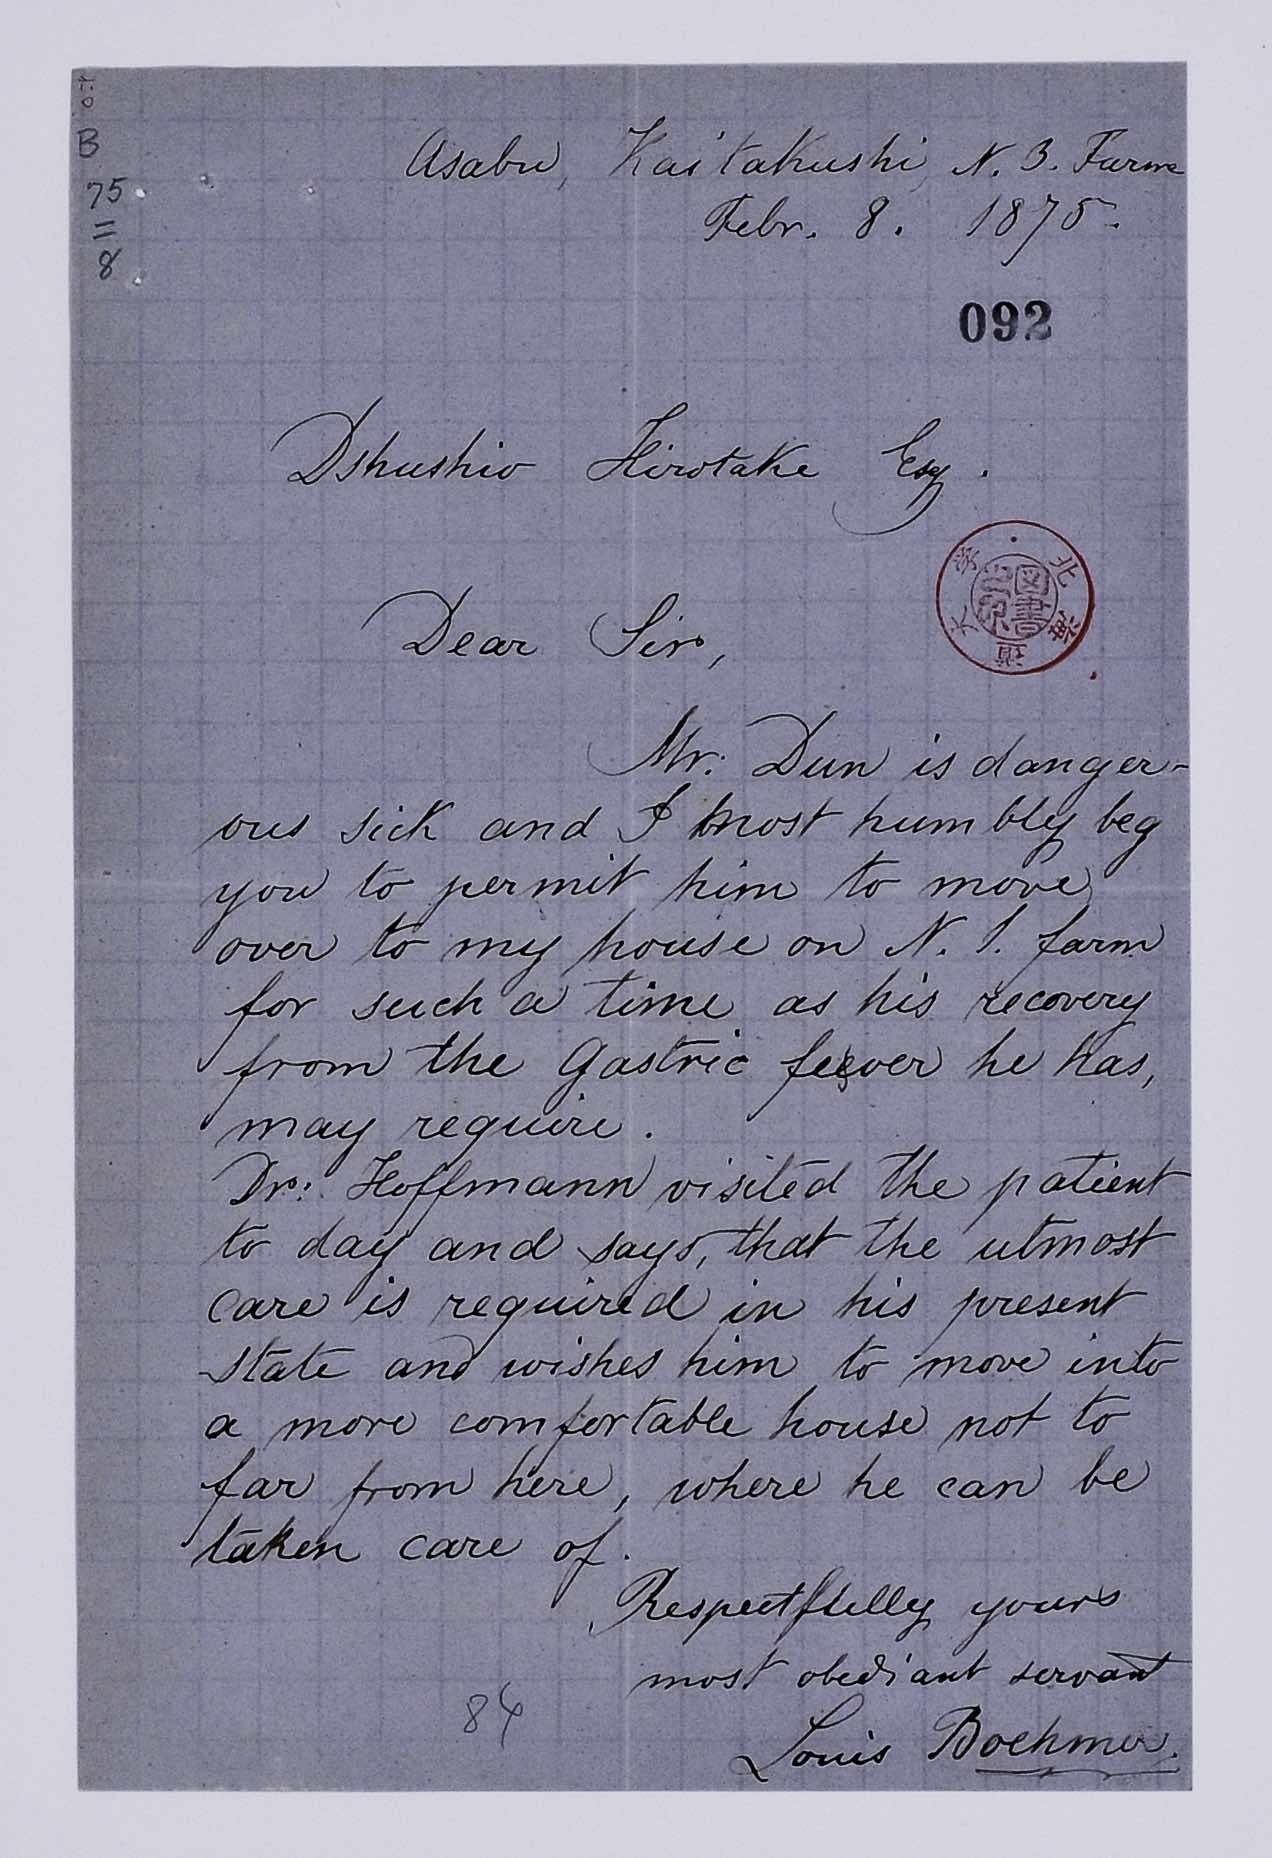 B
75
=
8
Asabu, Kaitakushi, N. 3. Farm
Febr. 8. 1875.
092
Dshushio Hirotake Esq.
北海道大学
図書之印
Dear Sir,
Mr. Dun is danger-
ous sick and I most humbly beg
you to permit him to move
over to my house on N. 1. farm
for such a time as his recovery
from the Gastric feever he has,
may require.
Dr: Hoffmann visited the patient
to day and says, that the utmost
care is required in his present
state and wishes him to move into
a more comfortable house not to
far from here, where he can be
taken care of.
Respectfully yours
most obediant servant
Louis Boehmer.
84